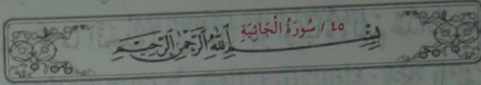 ٤٥ / سُورَةُ الْجَاثِيَةِ
بِسْمِ اللَّهِ الرَّحْمَٰنِ الرَّحِيمِ